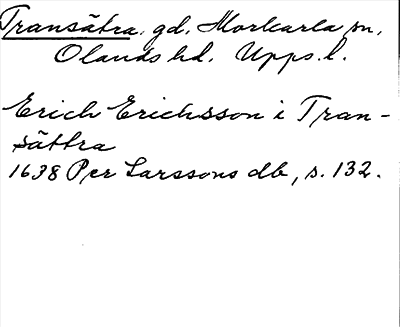 Transätra. gd, Morkarla sn,
Olands hd. Upps. l.
Erich Erichsson i Tran-
sättra
1638 Per Larssons db, s. 132.